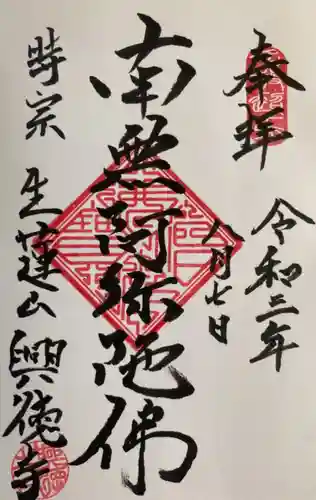 奉拝
令和三年
八月七日
南無阿弥陀佛
時宗
生蓮山
興徳寺